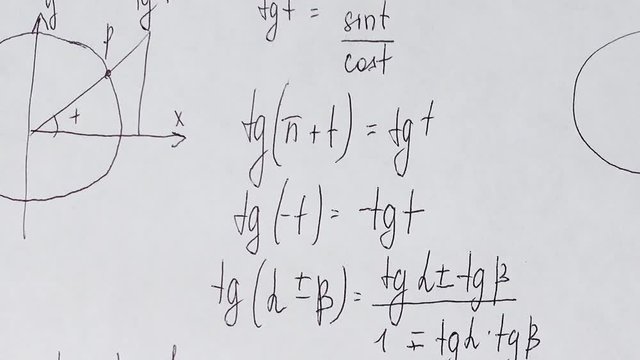 y
tg t
P
t
x
tg t = sin t / cos t
tg(π + t) = tg t
tg(-t) = -tg t
tg(α ± β) = (tg α ± tg β) / (1 ∓ tg α · tg β)